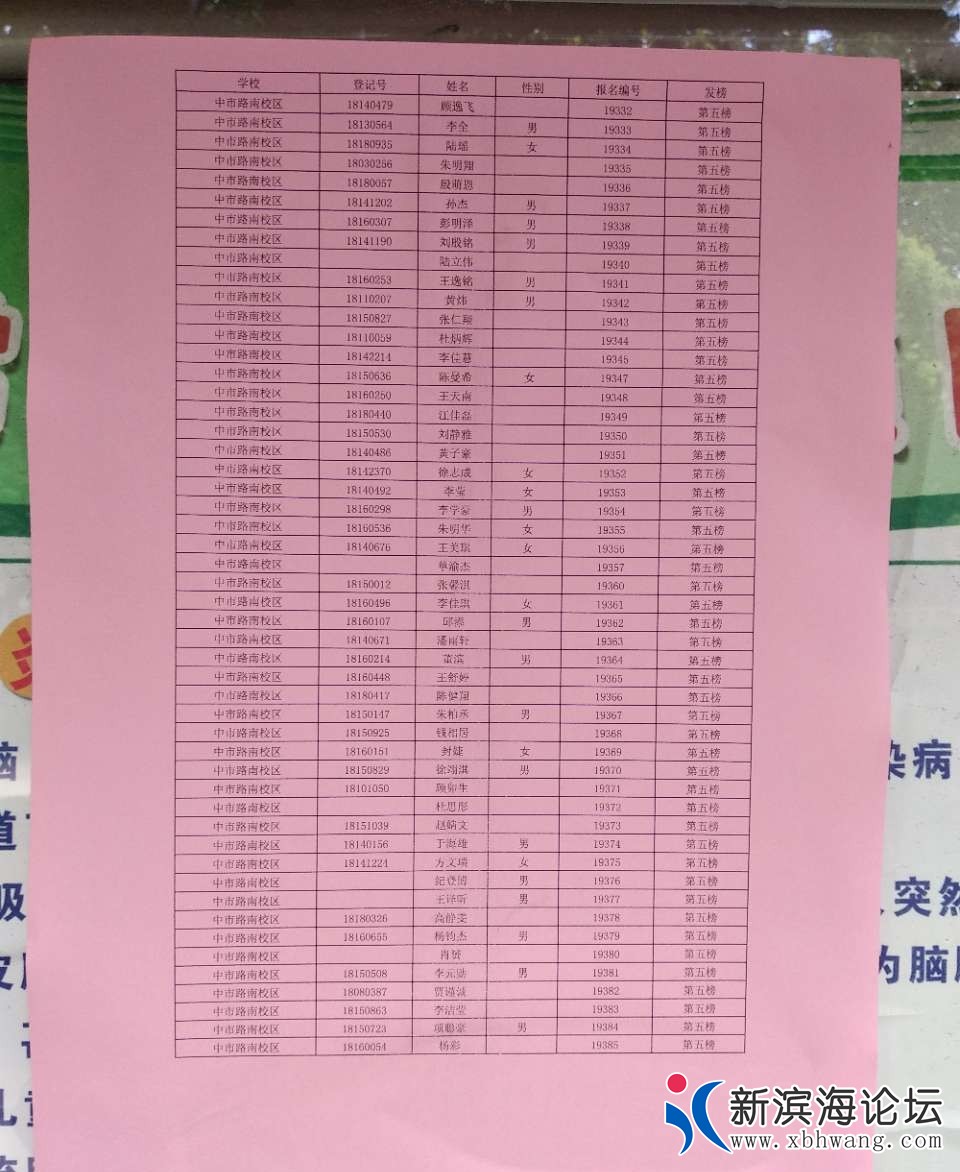 学校 登记号 姓名 性别 报名编号 发榜
中市路南校区 18140479 顾逸飞 19332 第五榜
中市路南校区 18130564 李全 男 19333 第五榜
中市路南校区 18180935 陆瑶 女 19334 第五榜
中市路南校区 18030256 朱明翔 19335 第五榜
中市路南校区 18180057 殷萌恩 19336 第五榜
中市路南校区 18141202 孙杰 男 19337 第五榜
中市路南校区 18160307 彭明泽 男 19338 第五榜
中市路南校区 18141190 刘殷铭 男 19339 第五榜
中市路南校区 陆立伟 19340 第五榜
中市路南校区 18160253 王逸铭 男 19341 第五榜
中市路南校区 18110207 黄炜 男 19342 第五榜
中市路南校区 18150827 张仁 19343 第五榜
中市路南校区 18110059 杜炳辉 19344 第五榜
中市路南校区 18142214 李佳慧 19345 第五榜
中市路南校区 18150636 陈曼希 女 19347 第五榜
中市路南校区 18160250 王天南 19348 第五榜
中市路南校区 18180440 江佳磊 19349 第五榜
中市路南校区 18150530 刘静雅 19350 第五榜
中市路南校区 18140486 黄子豪 19351 第五榜
中市路南校区 18142370 徐志成 女 19352 第五榜
中市路南校区 18140492 李莹 女 19353 第五榜
中市路南校区 18160298 李学豪 男 19354 第五榜
中市路南校区 18160536 朱明华 女 19355 第五榜
中市路南校区 18140676 王美琪 女 19356 第五榜
中市路南校区 单渝杰 19357 第五榜
中市路南校区 18150012 张馨淇 19360 第五榜
中市路南校区 18160496 李佳琪 女 19361 第五榜
中市路南校区 18160107 邱添 男 19362 第五榜
中市路南校区 18140671 潘雨轩 19363 第五榜
中市路南校区 18160214 董滨 男 19364 第五榜
中市路南校区 18160448 王舒婷 19365 第五榜
中市路南校区 18180417 陈健 19366 第五榜
中市路南校区 18150147 朱柏丞 男 19367 第五榜
中市路南校区 18150925 钱相 19368 第五榜
中市路南校区 18160151 封婕 女 19369 第五榜
中市路南校区 18150829 徐翊淇 男 19370 第五榜
中市路南校区 18101050 顾卯生 19371 第五榜
中市路南校区 杜思彤 19372 第五榜
中市路南校区 18151039 赵炳文 19373 第五榜
中市路南校区 18140156 于海雄 男 19374 第五榜
中市路南校区 18141224 方文靖 女 19375 第五榜
中市路南校区 纪登博 男 19376 第五榜
中市路南校区 王译昕 男 19377 第五榜
中市路南校区 18180326 高静雯 19378 第五榜
中市路南校区 18160655 杨钧杰 男 19379 第五榜
中市路南校区 肖赟 19380 第五榜
中市路南校区 18150508 李元勋 男 19381 第五榜
中市路南校区 18080387 贾谨诚 19382 第五榜
中市路南校区 18150863 李洁莹 19383 第五榜
中市路南校区 18150723 项聪豪 男 19384 第五榜
中市路南校区 18160054 杨彩 19385 第五榜
脑 染病
道
吸 突然
皮 为脑
儿童
新滨海论坛
www.xbhwang.com